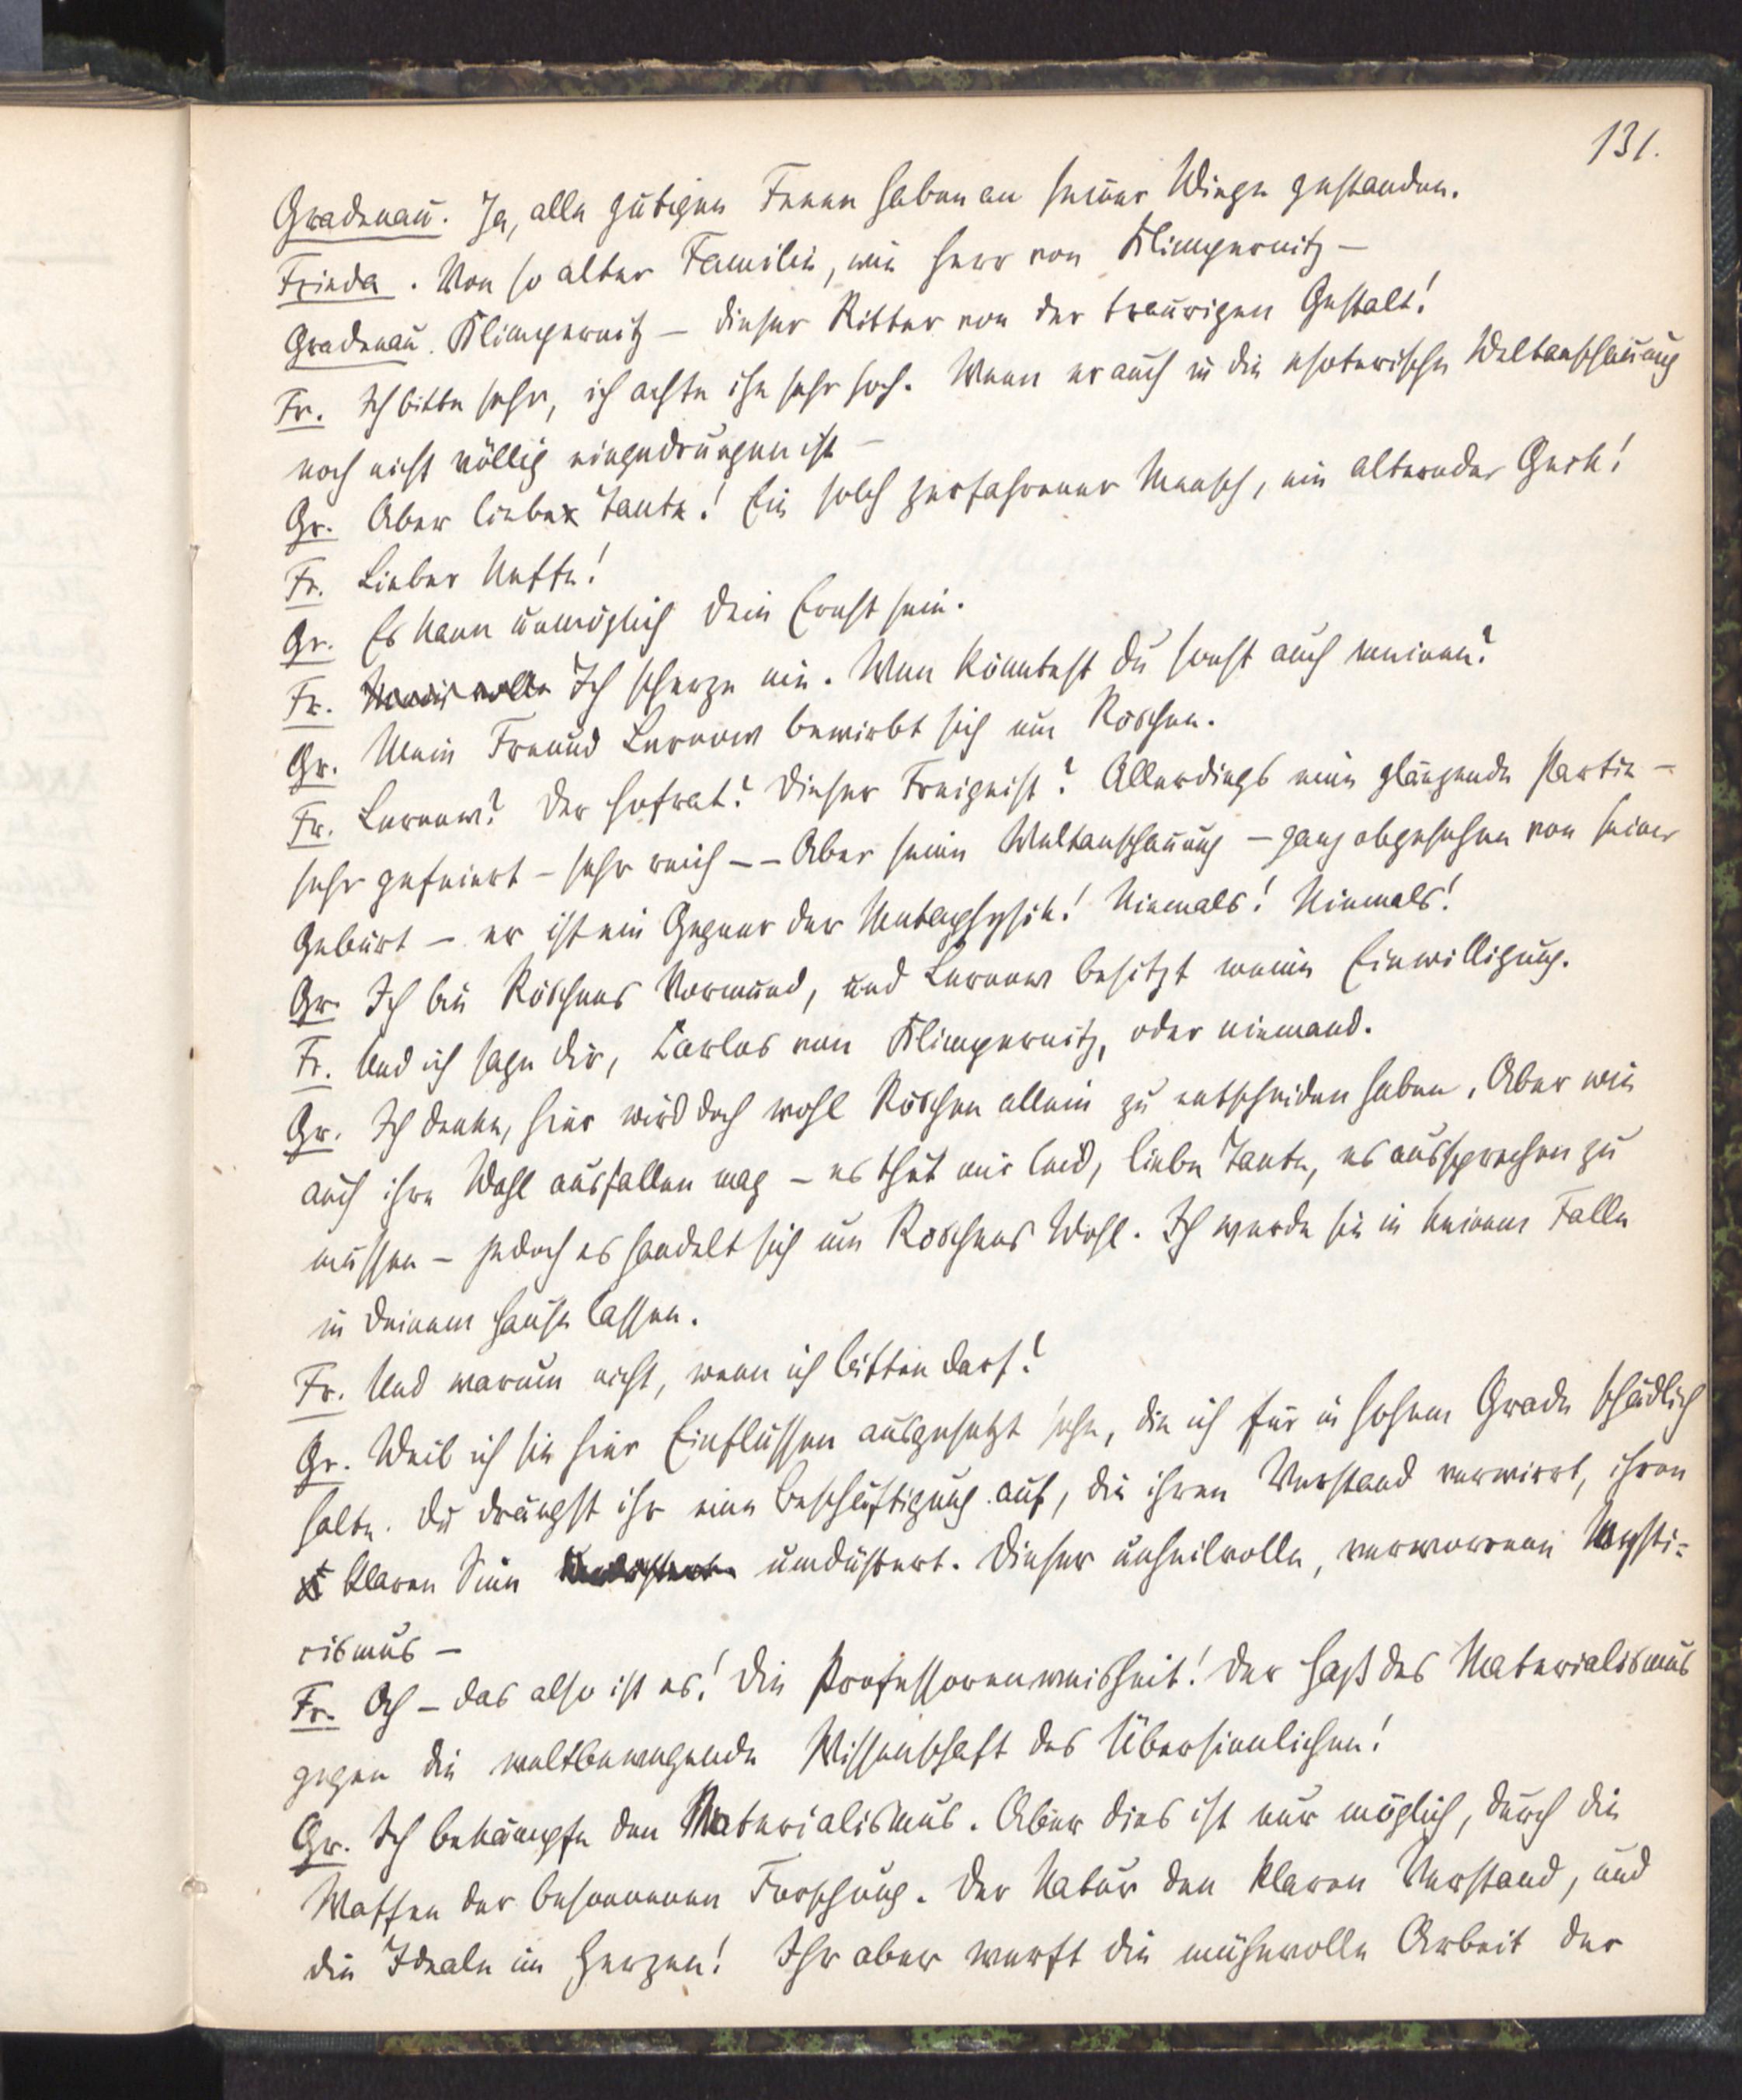 131.
Gradenau. Ja, alle gütigen Feeen haben an seiner Wiege gestanden.
Frieda. Von so alter Familie, wie Herr von Klimpernitz –
Gradenau. Klimpernitz – dieser Ritter von der traurigen Gestalt!
Fr. Ich bitte sehr, ich achte ihn sehr hoch. Wenn er auch in die esoterische Weltanschauung
noch nicht völlig eingedrungen ist –
Gr. Aber liebe Tante! Ein solch zerfahrener Mensch, ein alternder Geck!
Fr. Lieber Neffe!
Gr. Es kann unmöglich dein Ernst sein.
Fr. Ich scherze nie. Wen könntest du sonst auch meinen?
Gr. Mein Freund Lernow bewirbt sich um Röschen.
Fr. Lernow? Der Hofrat? Dieser Freigeist? Allerdings eine glänzende Partie –
sehr gefeiert – sehr reich –– Aber seine Weltanschauung – ganz abgesehen von seiner
Geburt – er ist ein Gegner der Metaphysik! Niemals! Niemals!
Gr. Ich bin Röschens Vormund, und Lernow besitzt meine Einwilligung.
Fr. Und ich sage dir, Carlos von Klimpernitz, oder niemand.
Gr. Ich denke, hier wird doch wohl Röschen allein zu entscheiden haben. Aber wie
auch ihre Wahl ausfallen mag – es thut mir leid, liebe Tante, es aussprechen zu
müssen – jedoch es handelt sich um Röschens Wohl. Ich werde sie in keinem Falle
in deinem Hause lassen.
Fr. Und warum nicht, wenn ich bitten darf?
Gr. Weil ich sie hier Einflüssen ausgesetzt sehe, die ich für in hohem Grade schädlich
halte. Du drängst ihr eine Beschäftigung auf, die ihren Verstand verwirrt, ihren
klaren Sinn umdüstert. Dieser unheilvolle, verworrene Mysti=
cismus –
Fr. Ach – das also ist es! Die Professorenweisheit! Der Haß des Materialismus
gegen die weltbewegende Wissenschaft des Übersinnlichen!
Gr. Ich bekämpfe den Materialismus. Aber dies ist nur möglich, durch die
Waffen der besonnenen Forschung. Der Natur den klaren Verstand, und
die Ideale im Herzen! Ihr aber werft die mühevolle Arbeit der